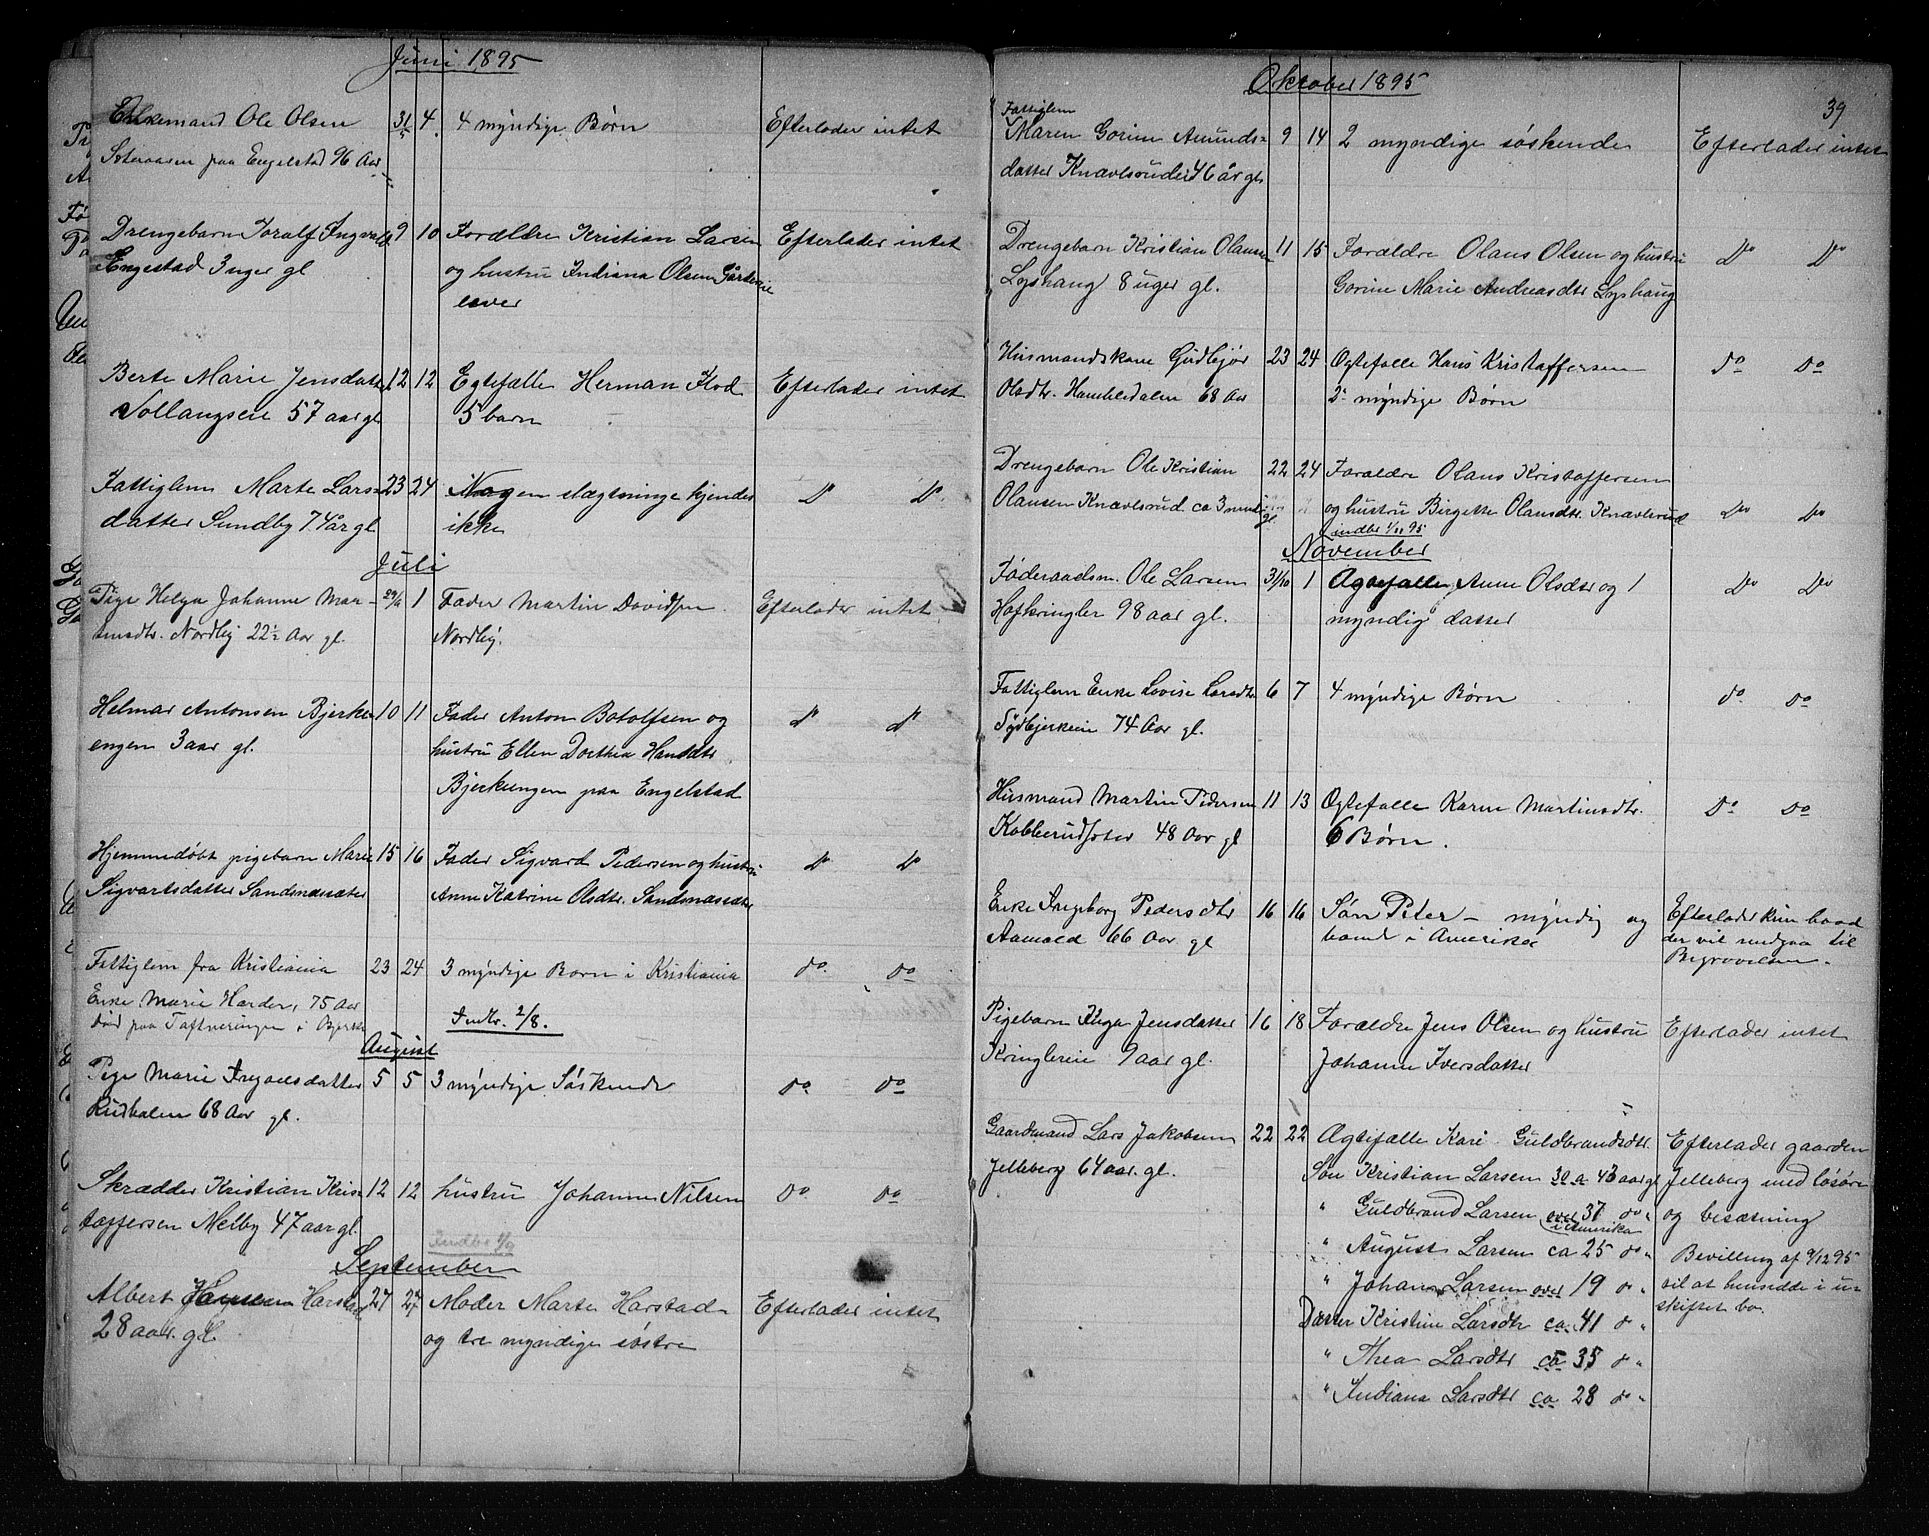 Juni 1895
Enkemand Ole Olsen 31/5 4 4 myndige Børn Efterlader intet
paa Engelstad 96 Aar
Drengebarn Toralf Ingvald 9 10 Forældre Kristian Larsen Efterlader intet
Engestad 3 uger gl og hustru Indiana Olsen
Berte Marie Jensdatter 12 12 Egtefælle Herman Efterlader intet
57 aar gl 5 barn
Fattiglem Marte Lars- 23 24 Nogen slægtninge kjendes do do
datter Sundby 74 år gl ikke
Juli
Pige Helga Johanne Mar- 29/6 1 Fader Martin Davidsen Efterlader intet
tinsdtr. Nordby 22½ Aar gl. Nordby.
Helmar Antonsen Bjerke- 10 11 Fader Anton Botolfsen og do do
engen 3 aar gl. hustru Ellen Dorthea Hansdtr
Bjerkeengen paa Engelstad
Hjemmedøbt pigebarn Marie 15 16 Fader Sigvard Pedersen og hustru do do
Sigvartsdatter Sandsnæssæter Anne Katrine Olsdtr. Sandsnæssæter
Fattiglem fra Kristiania 23 24 3 myndige Børn i Kristiania do do
Enke Marie Harder, 75 Aar
død paa i Indb. 2/8.
August
Pige Marie datter 5 5 3 myndige Søskende do do
68 Aar gl.
Skrædder Kristian Kris- 12 12 hustru Johanne Nilsen do do
toffersen Melby 47 aar gl.
Indb.
September
Albert Hansen Harstad 27 27 Moder Marte Harstad Efterlader intet
28 aar gl. og tre myndige søstre
Oktober 1895
39
Fattiglem
Maren Gorine Amunds- 9 14 2 myndige søskende Efterlader intet
datter Knævlsrudei 46 år gl.
Drengebarn Kristian Olausen 11 15 Forældre Olaus Olsen og hustru do do
Lyshaug 8 uger gl. Gorine Marie Andreasdtr Lyshaug
Husmandskone Gudbjør 23 24 Ægtefælle Hans Kristoffersen do do
Olsdtr. Hambledalen 68 Aar 2 myndige Børn
Drengebarn Ole Kristian 22 24 Forældre Olaus Kristoffersen
Olausen Knævlsrud ca 3 mnd gl. og hustru Birgitte Olausdtr. Knævlsrud do do
indb. 1/11 95
November
Føderaadsm. Ole Larsen 31/10 1 Ægtefælle Anne Olsdtr og 1 do do
Hofkringler 98 aar gl. myndig datter
Fattiglem Enke Lovise Larsdtr 6 7 4 myndige Børn do do
Sydbjerkeie 74 Aar gl.
Husmand Martin Pedersen 11 13 Ægtefælle Karen Martinsdtr. do do
48 Aar gl 6 Børn.
Enke Ingeborg Pedersdtr 16 16 Søn Peter - myndig og Efterlader kun hvad
Aamold 66 Aar gl bond i Amerika der vil medgaa til
Begravelsen.
Pigebarn Inga Jensdatter 16 18 Forældre Jens Olsen og hustru Efterlader intet
Kringlereie 9 aar gl. Johanne Iversdatter
Gaardmand Lars Jakobsen 22 22 Ægtefælle Kari Guldbrandsdtr. Efterlader gaarden
Jelleberg 64 aar. gl. Søn Kristian Larsen ca 43 aar gl Jelleberg med løsøre
" Guldbrand Larsen over 37 do " og besætning
i Amerika
" August Larsen ca 25 do " Bevilling af 9/12 95
" Johan Larsen over 19 do " til at hensidde i u-
Datter Kristine Larsdtr ca. 41 do " skiftet bo.
" Thea Larsdtr ca 35 do "
" Indiana Larsdtr ca 28 do "